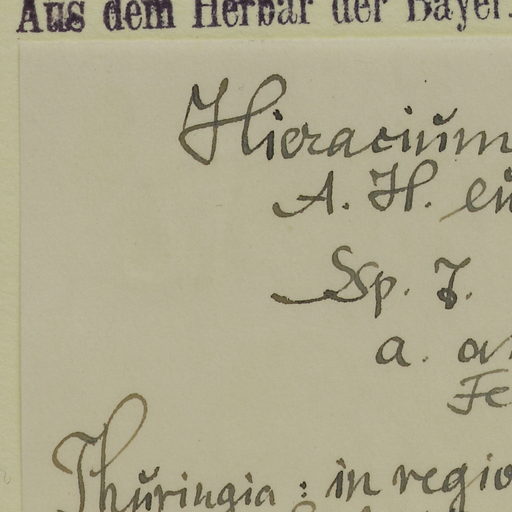 Aus dem Herbar der Bayer.
Hieracium
A. H. eu
Sp. 7.
a.
Fe
Thuringia : in regio